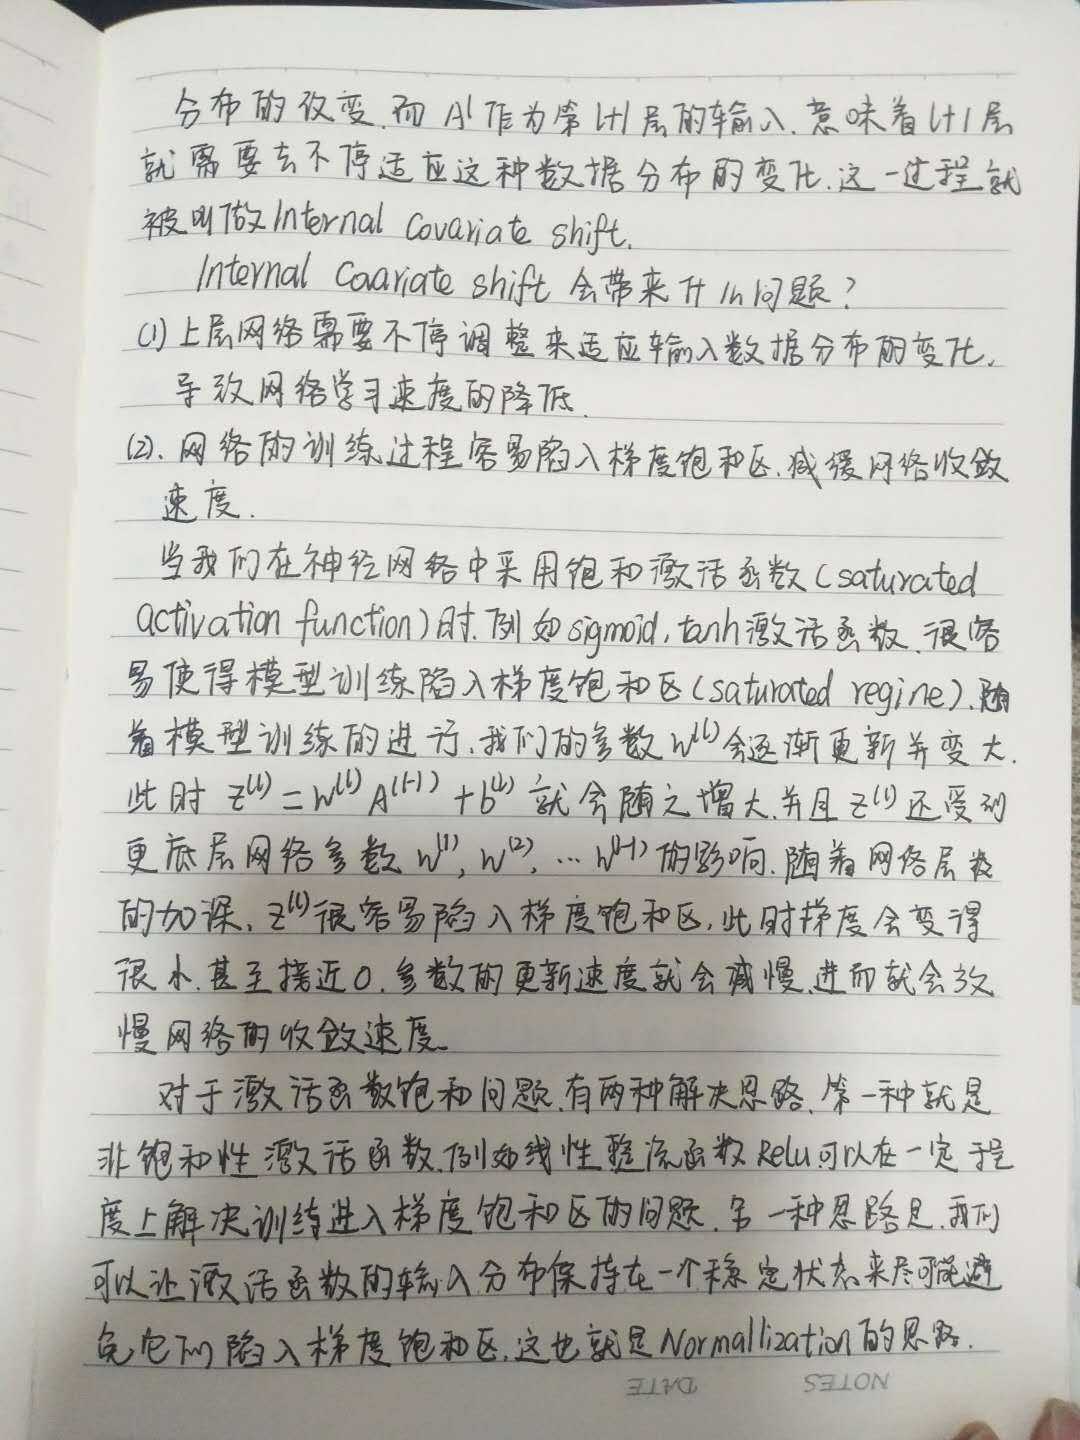 分布的改变.而A^l作为第l+1层的输入.意味着l+1层
就需要去不停适应这种数据分布的变化.这一过程就
被叫做Internal Covariate shift.
Internal Coariate shift 会带来什么问题?
(1)上层网络需要不停调整来适应输入数据分布的变化,
导致网络学习速度的降低.
(2).网络的训练过程容易陷入梯度饱和区.减缓网络收敛
速度.
当我们在神经网络中采用饱和激活函数(saturated
activation function)时.例如sigmoid,tanh激活函数.很容
易使得模型训练陷入梯度饱和区(saturated regine).随
着模型训练的进行.我们的参数W^(l)会逐渐更新并变大.
此时 Z^(l)=W^(l)A^(l-1)+b^(l) 就会随之增大.并且Z^(l)还受到
更底层网络参数W^(1),W^(2),…W^(l-1)的影响.随着网络层数
的加深,Z^(l)很容易陷入梯度饱和区,此时梯度会变得
很小.甚至接近0.参数的更新速度就会减慢.进而就会放
慢网络的收敛速度.
对于激活函数饱和问题.有两种解决思路.第一种就是
非饱和性激活函数.例如线性整流函数Relu可以在一定程
度上解决训练进入梯度饱和区的问题.另一种思路是.我们
可以让激活函数的输入分布保持在一个稳定状态来尽可能避
免它们陷入梯度饱和区.这也就是Normallization的思路.
NOTES DATE